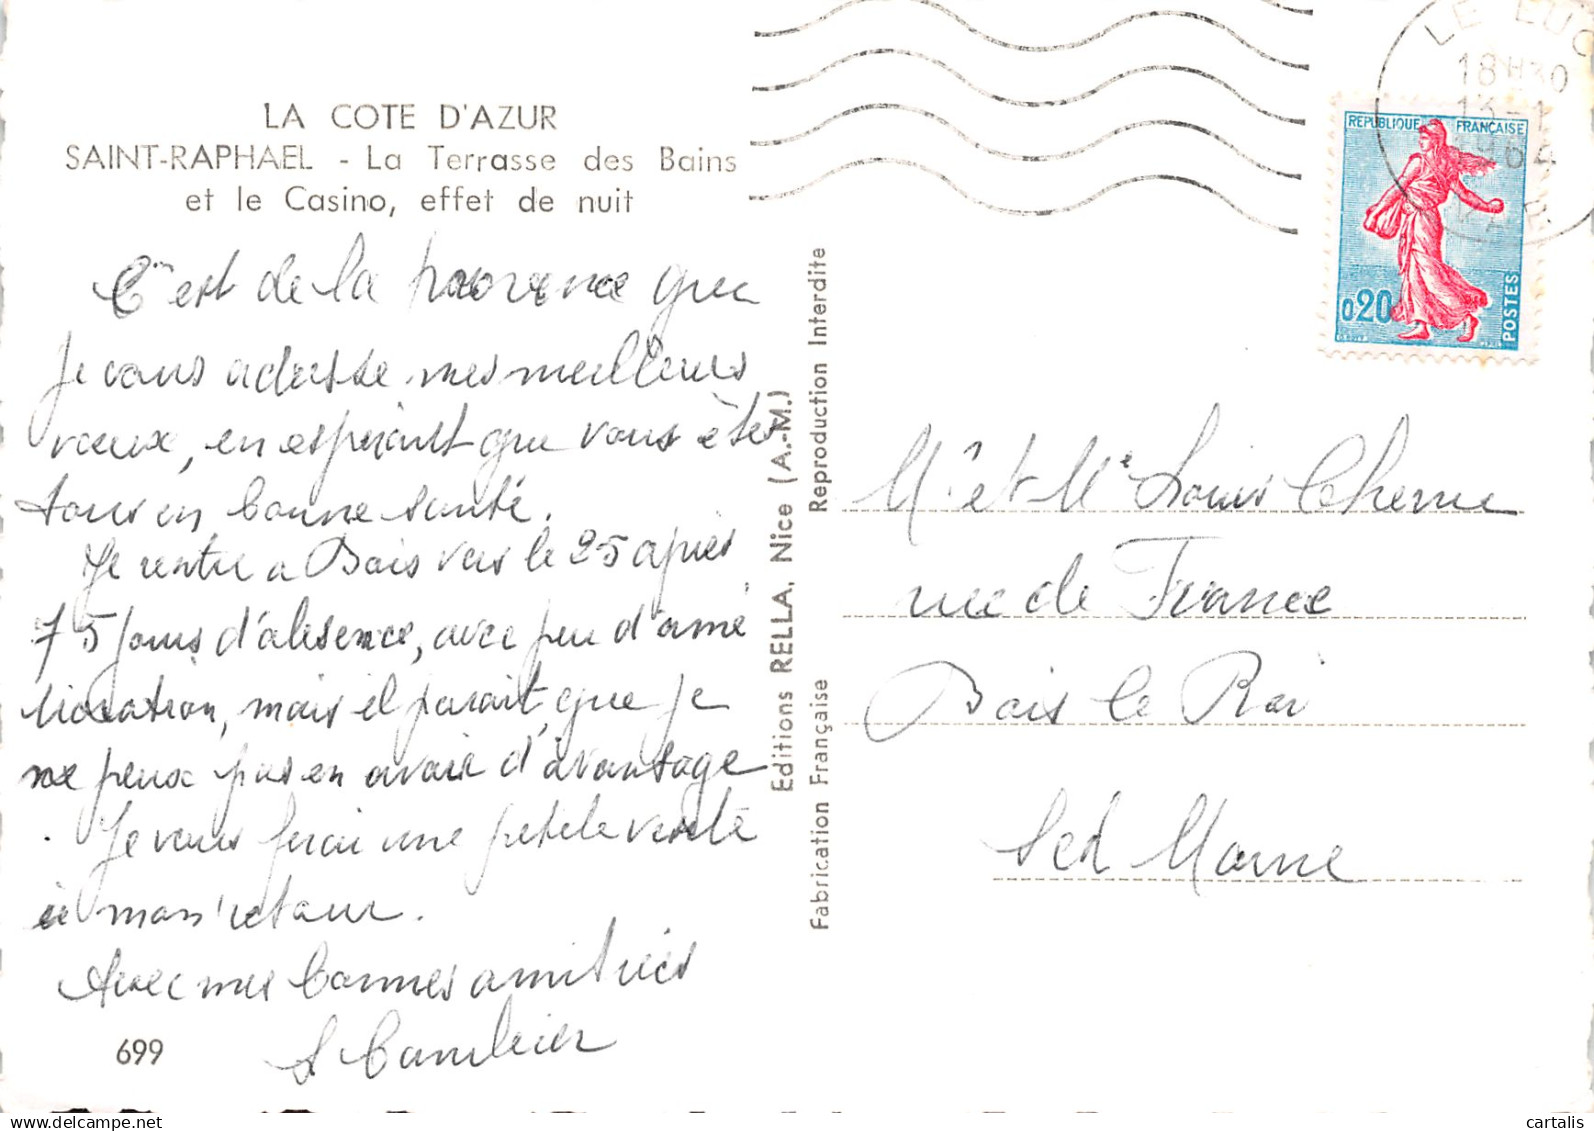 LA COTE D'AZUR
SAINT-RAPHAEL - La Terrasse des Bains
et le Casino, effet de nuit
C'est de la provence que
je vous adresse mes meilleurs
vœux, en espérant que vous êtes
tous en bonne santé.
Je rentre a Bois vers le 25 après
75 jours d'absence, avec peu d'amé
lioration, mais il parait, que je
ne peux pas en avoir d'avantage
. Je vous ferai une petite visite
à mon retour.
Avec mes bonnes amitiés
699
Editions RELLA, Nice (A.-M.)
Fabrication Française
Reproduction Interdite
LE LUC
18H30
13-1
1964
REPUBLIQUE FRANÇAISE
0,20
POSTES
Mr et Me Louis
rue de France
Bois le Roi
S et Marne
cartalis